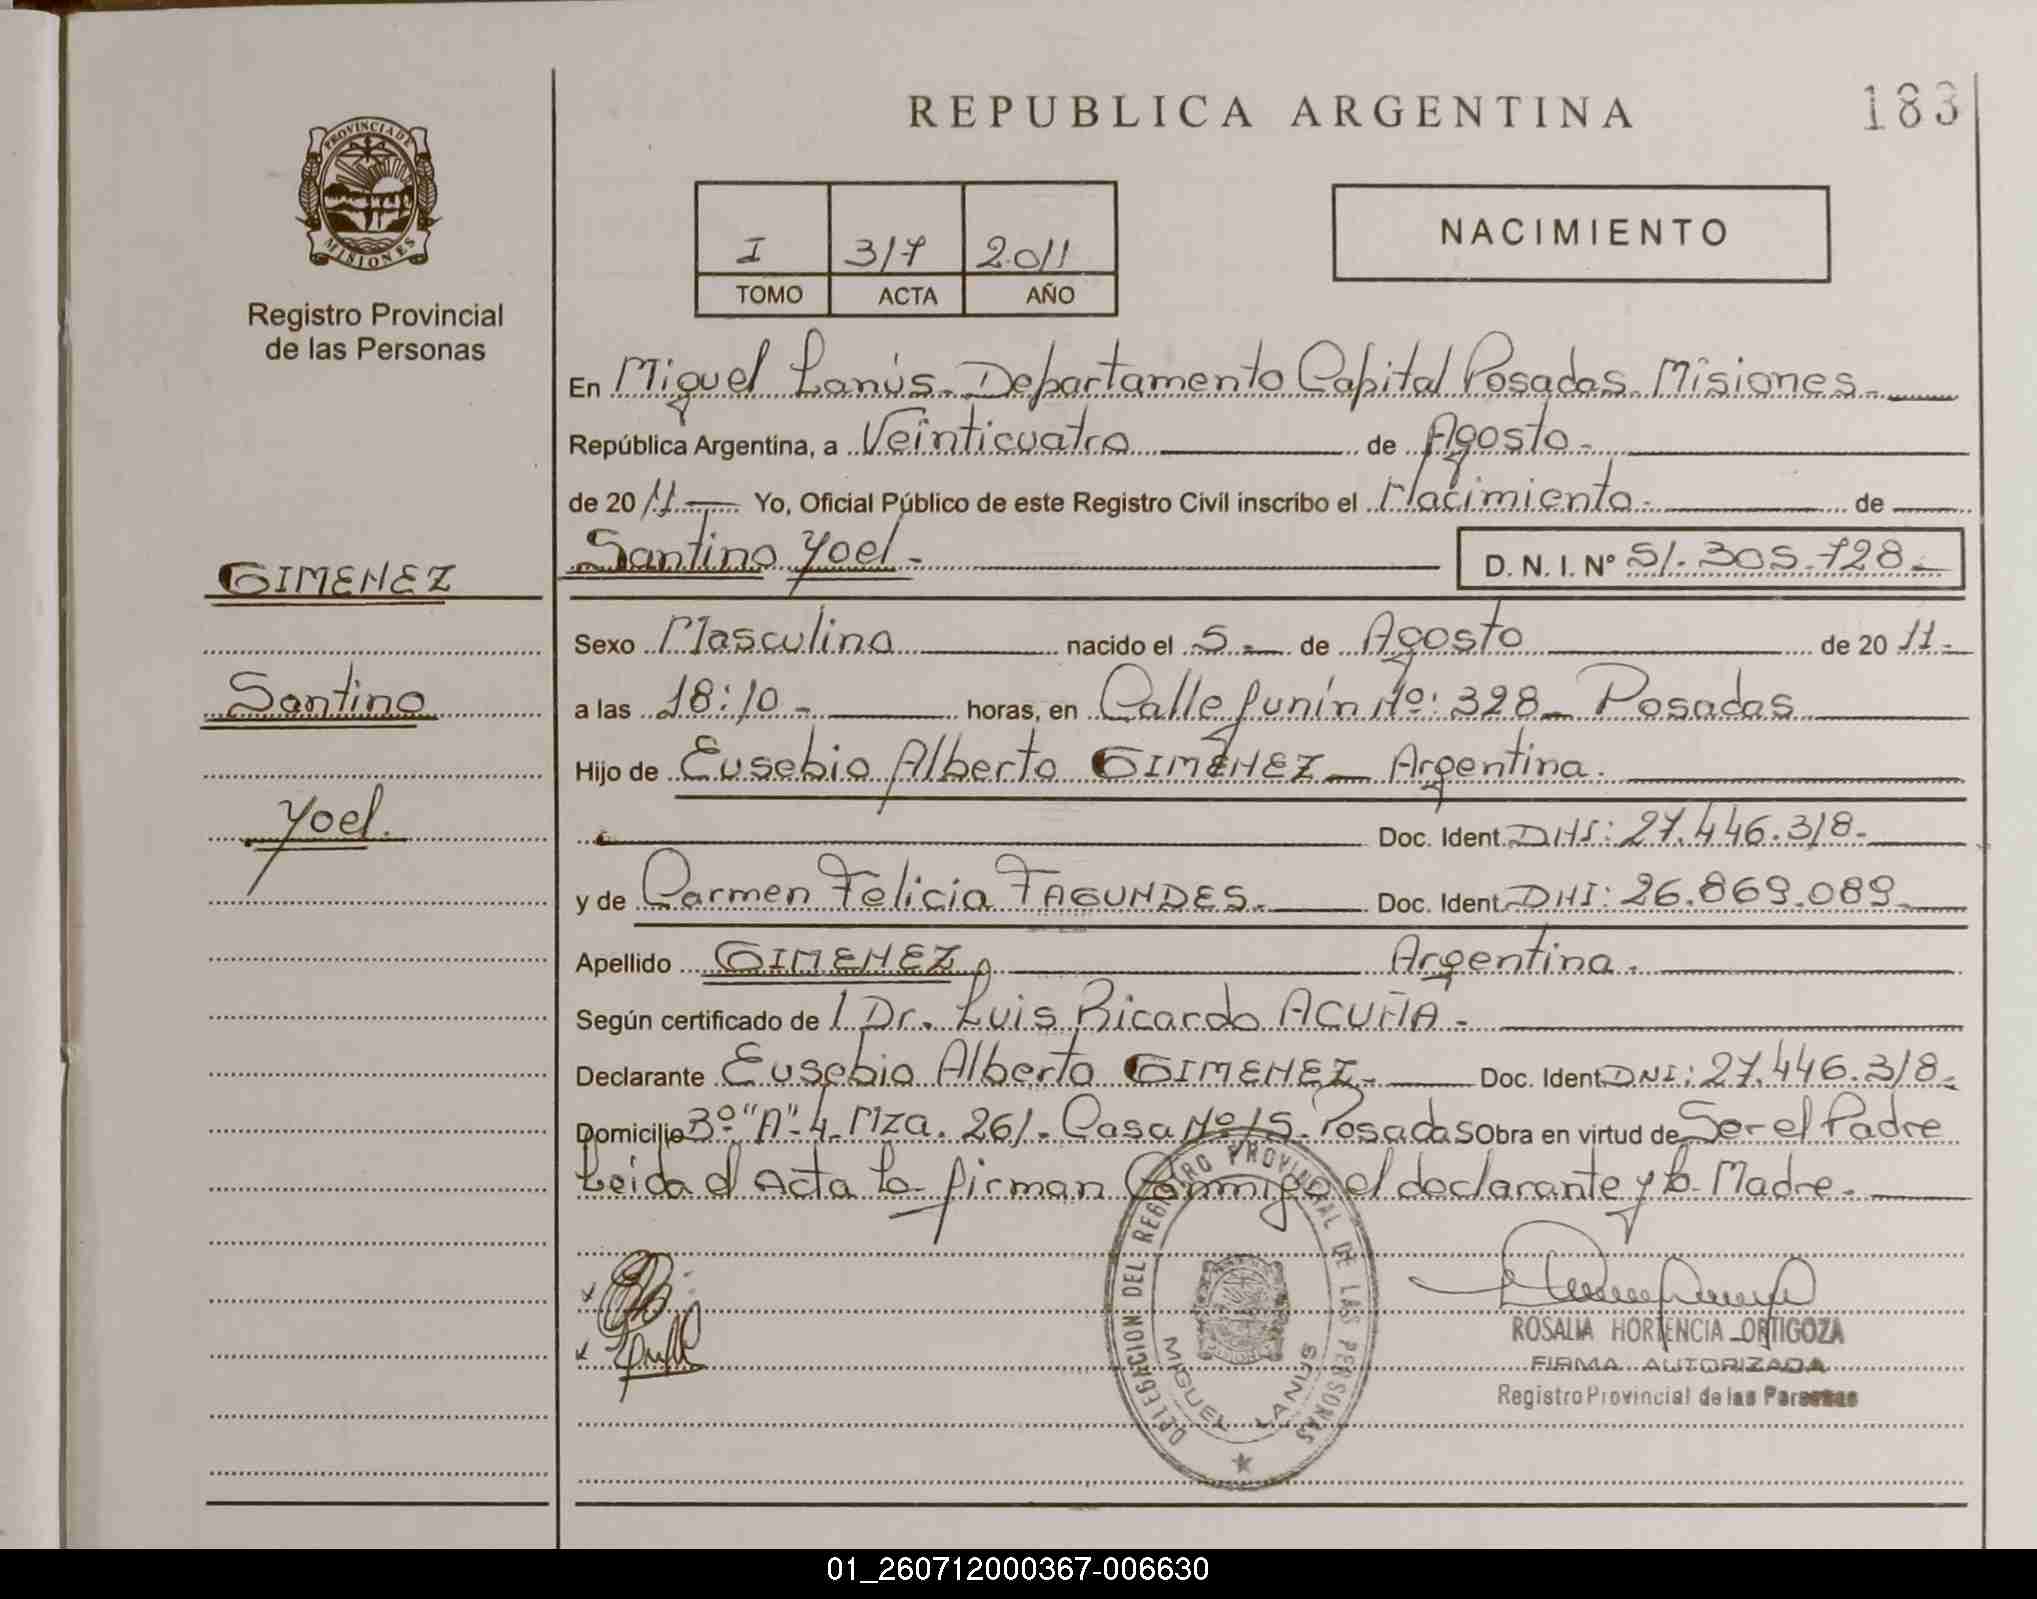 REPUBLICA ARGENTINA
183
PROVINCIA DE
MISIONES
Registro Provincial
de las Personas
I 317 2011
TOMO ACTA AÑO
NACIMIENTO
En Miguel Lanús. Departamento Capital Posadas Misiones.
República Argentina, a Veinticuatro de Agosto.
de 2011 Yo, Oficial Público de este Registro Civil inscribo el Nacimiento. de
Santino Yoel. D. N. I. Nº 51.305.728.
GIMENEZ
Santino
Yoel.
Sexo Masculino nacido el 5 de Agosto de 2011
a las 18:10 horas, en Calle Junín Nº: 328 Posadas
Hijo de Eusebio Alberto GIMENEZ Argentina.
Doc. Ident. DNI: 27.446.318.
y de Carmen Felicia FAGUNDES. Doc. Ident. DNI: 26.869.089
Apellido GIMENEZ Argentina.
Según certificado de Dr. Luis Ricardo ACUÑA
Declarante Eusebio Alberto GIMENEZ Doc. Ident DNI: 27.446.318
Domicilio Bº "A" 4 Mza. 261. Casa Nº 15. Posadas Obra en virtud de Ser el Padre
Leída el Acta la firman Conmigo el declarante y la Madre.
DELEGACION DEL REGISTRO PROVINCIAL DE LAS PERSONAS
MIGUEL LANUS
ROSALIA HORTENCIA ORTIGOZA
FIRMA AUTORIZADA
Registro Provincial de las Personas
01_260712000367-006630